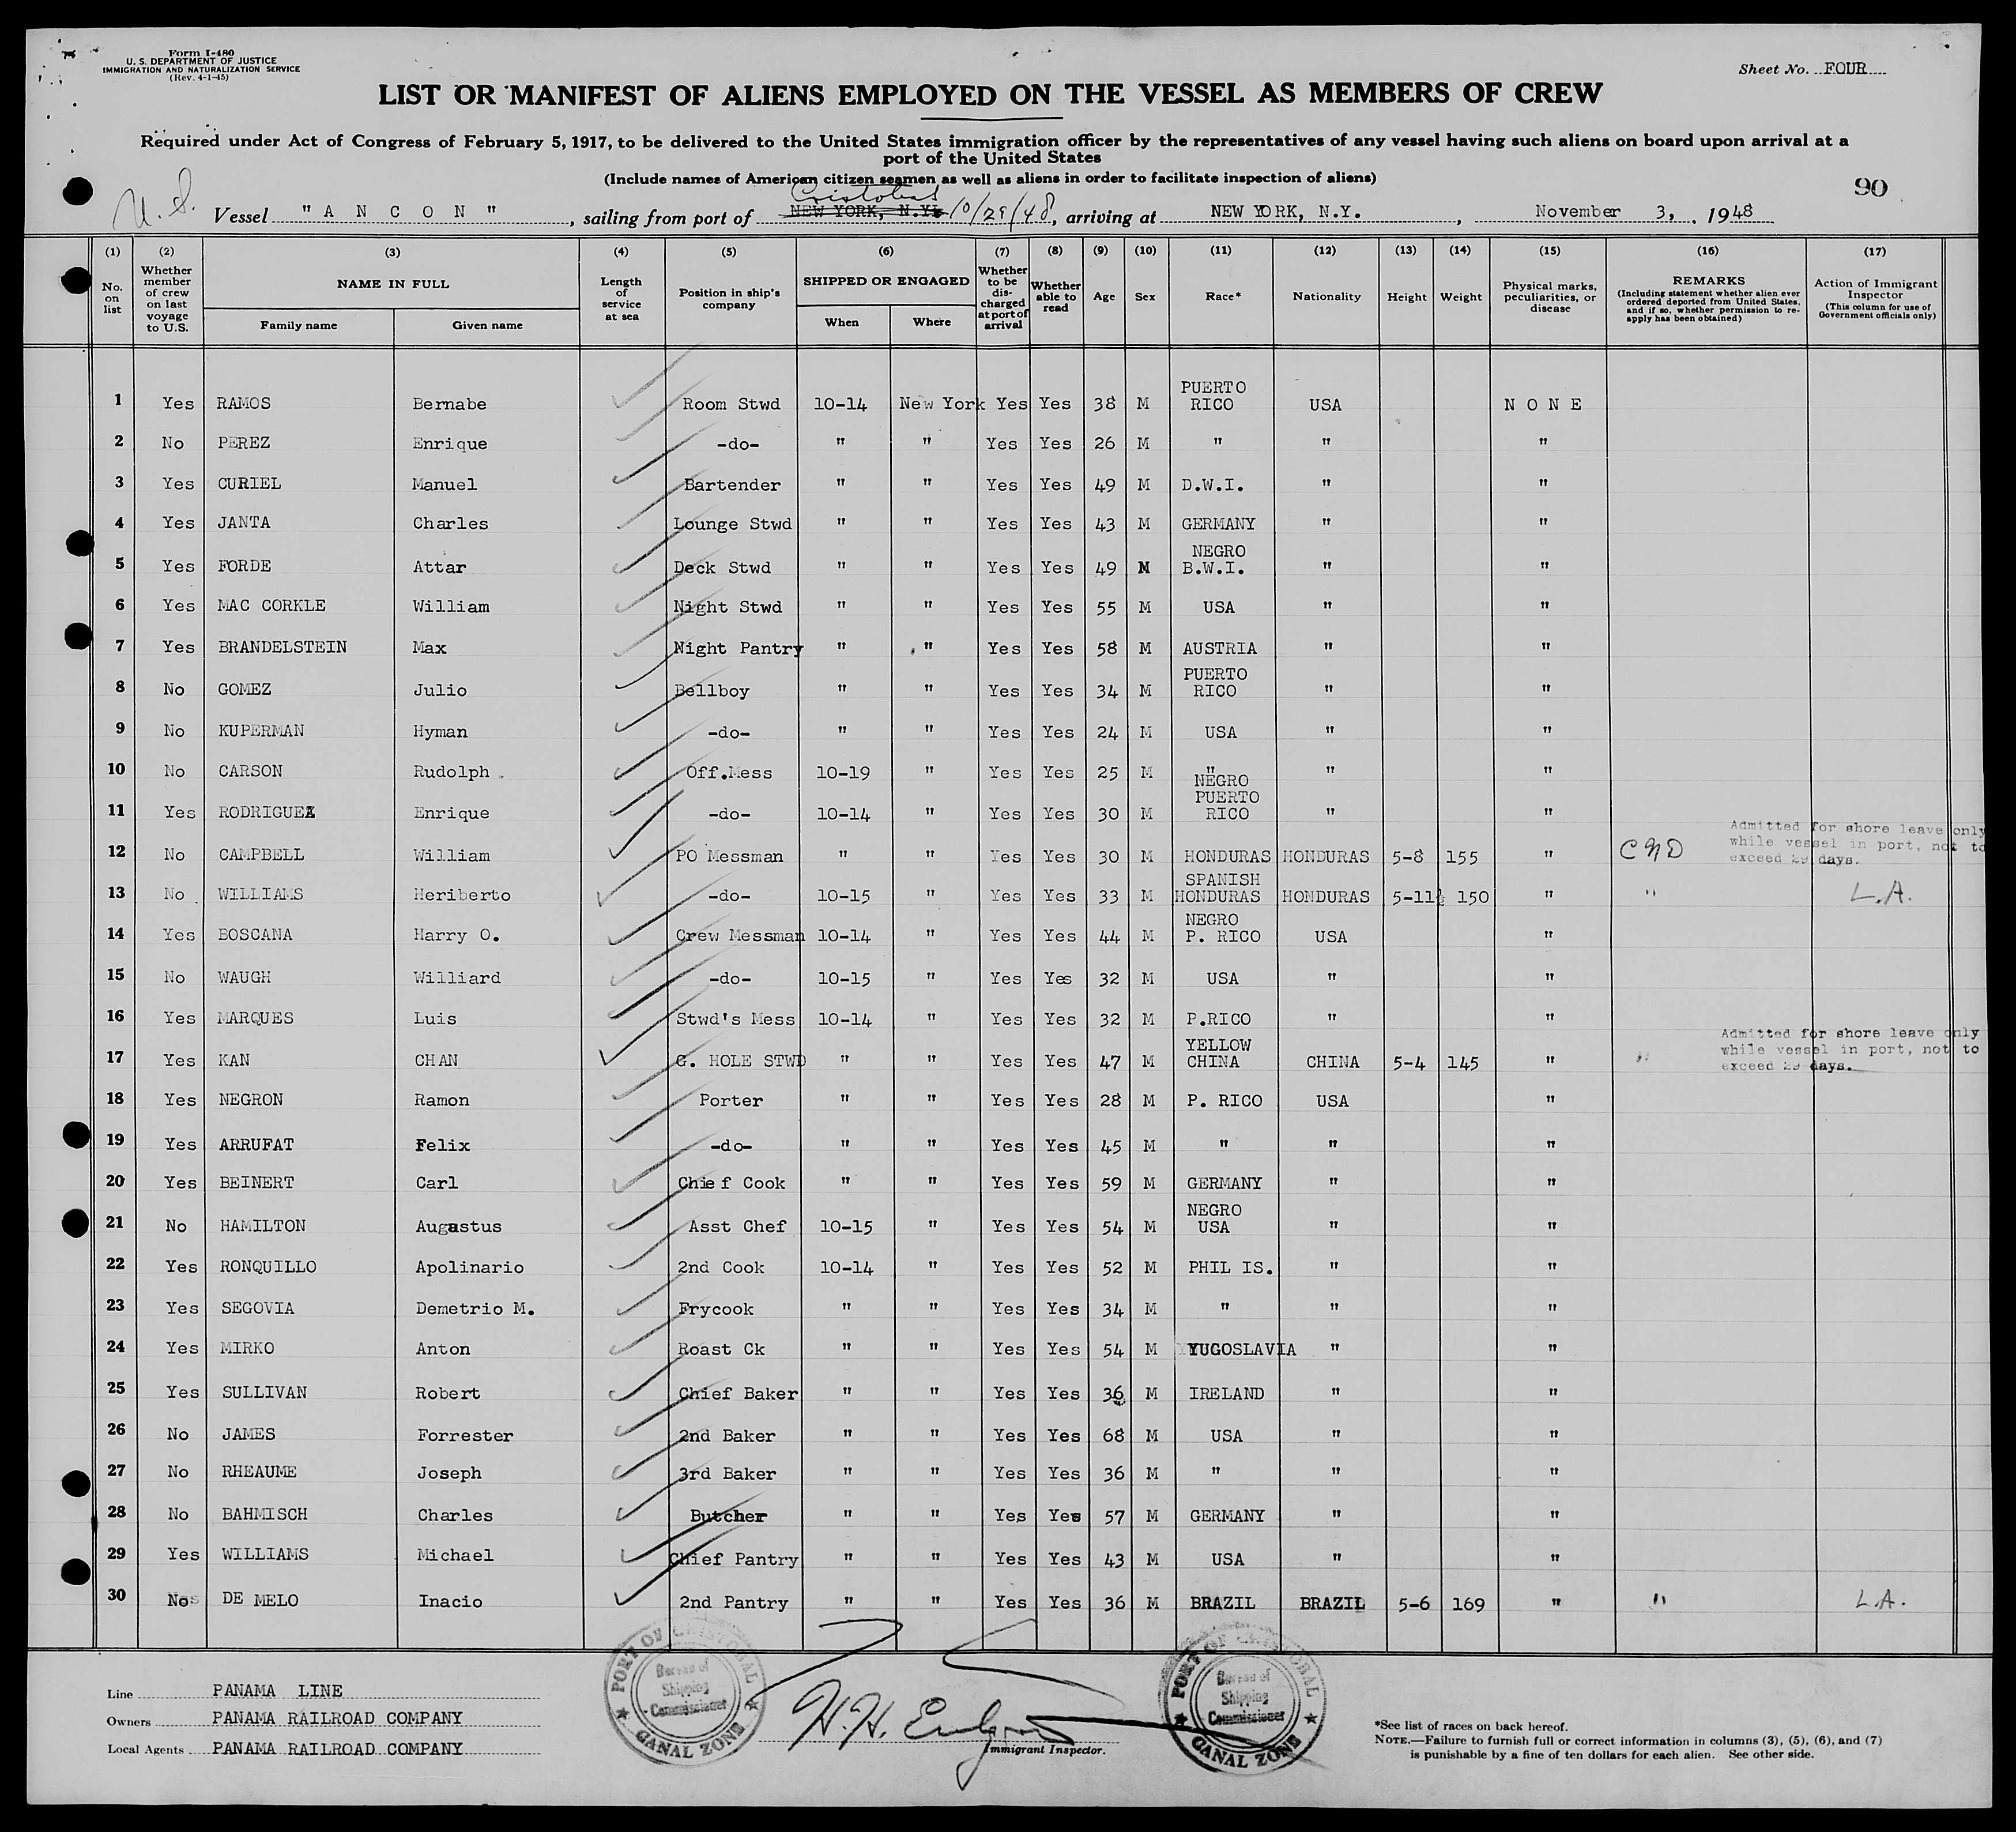 Form I-480
U. S. DEPARTMENT OF JUSTICE
IMMIGRATION AND NATURALIZATION SERVICE
(Rev. 4-1-45)
Sheet No. FOUR
LIST OR MANIFEST OF ALIENS EMPLOYED ON THE VESSEL AS MEMBERS OF CREW
Required under Act of Congress of February 5, 1917, to be delivered to the United States immigration officer by the representatives of any vessel having such aliens on board upon arrival at a
port of the United States
(Include names of American citizen seamen as well as aliens in order to facilitate inspection of aliens)
90
U.S. Vessel "A N C O N", sailing from port of NEW YORK, N.Y. Cristobal 10/29/48, arriving at NEW YORK, N.Y., November 3, 1948
(1) (2) (3) (4) (5) (6) (7) (8) (9) (10) (11) (12) (13) (14) (15) (16) (17)
No. on list
Whether member of crew on last voyage to U.S.
NAME IN FULL
Family name
Given name
Length of service at sea
Position in ship's company
SHIPPED OR ENGAGED
When
Where
Whether to be discharged at port of arrival
Whether able to read
Age
Sex
Race*
Nationality
Height
Weight
Physical marks, peculiarities, or disease
REMARKS
(Including statement whether alien ever ordered deported from United States, and if so, whether permission to re-apply has been obtained)
Action of Immigrant Inspector
(This column for use of Government officials only)
1 Yes RAMOS Bernabe Room Stwd 10-14 New York Yes Yes 38 M PUERTO RICO USA N O N E
2 No PEREZ Enrique -do- " " Yes Yes 26 M " " "
3 Yes CURIEL Manuel Bartender " " Yes Yes 49 M D.W.I. " "
4 Yes JANTA Charles Lounge Stwd " " Yes Yes 43 M GERMANY " "
5 Yes FORDE Attar Deck Stwd " " Yes Yes 49 M NEGRO B.W.I. " "
6 Yes MAC CORKLE William Night Stwd " " Yes Yes 55 M USA " "
7 Yes BRANDELSTEIN Max Night Pantry " " Yes Yes 58 M AUSTRIA " "
8 No GOMEZ Julio Bellboy " " Yes Yes 34 M PUERTO RICO " "
9 No KUPERMAN Hyman -do- " " Yes Yes 24 M USA " "
10 No CARSON Rudolph Off.Mess 10-19 " Yes Yes 25 M " NEGRO " "
11 Yes RODRIGUEZ Enrique -do- 10-14 " Yes Yes 30 M PUERTO RICO " "
12 No CAMPBELL William PO Messman " " Yes Yes 30 M HONDURAS HONDURAS 5-8 155 " Admitted for shore leave only while vessel in port, not to exceed 29 days.
13 No WILLIAMS Heriberto -do- 10-15 " Yes Yes 33 M SPANISH HONDURAS HONDURAS 5-11½ 150 " " L.A.
14 Yes BOSCANA Harry O. Crew Messman 10-14 " Yes Yes 44 M NEGRO P. RICO USA "
15 No WAUGH Williard -do- 10-15 " Yes Yes 32 M USA " "
16 Yes MARQUES Luis Stwd's Mess 10-14 " Yes Yes 32 M P.RICO " "
17 Yes KAN CHAN G. HOLE STWD " " Yes Yes 47 M YELLOW CHINA CHINA 5-4 145 " " Admitted for shore leave only while vessel in port, not to exceed 29 days.
18 Yes NEGRON Ramon Porter " " Yes Yes 28 M P. RICO USA "
19 Yes ARRUFAT Felix -do- " " Yes Yes 45 M " " "
20 Yes BEINERT Carl Chief Cook " " Yes Yes 59 M GERMANY " "
21 No HAMILTON Augastus Asst Chef 10-15 " Yes Yes 54 M NEGRO USA " "
22 Yes RONQUILLO Apolinario 2nd Cook 10-14 " Yes Yes 52 M PHIL IS. " "
23 Yes SEGOVIA Demetrio M. Frycook " " Yes Yes 34 M " " "
24 Yes MIRKO Anton Roast Ck " " Yes Yes 54 M YUGOSLAVIA " "
25 Yes SULLIVAN Robert Chief Baker " " Yes Yes 36 M IRELAND " "
26 No JAMES Forrester 2nd Baker " " Yes Yes 68 M USA " "
27 No RHEAUME Joseph 3rd Baker " " Yes Yes 36 M " " "
28 No BAHMISCH Charles Butcher " " Yes Yes 57 M GERMANY " "
29 Yes WILLIAMS Michael Chief Pantry " " Yes Yes 43 M USA " "
30 No DE MELO Inacio 2nd Pantry " " Yes Yes 36 M BRAZIL BRAZIL 5-6 169 " " L.A.
Line PANAMA LINE
Owners PANAMA RAILROAD COMPANY
Local Agents PANAMA RAILROAD COMPANY
PORT OF CRISTOBAL
Bureau of Shipping Commissioner
CANAL ZONE
H.H.
Immigrant Inspector.
PORT OF CRISTOBAL
Bureau of Shipping Commissioner
CANAL ZONE
*See list of races on back hereof.
NOTE.—Failure to furnish full or correct information in columns (3), (5), (6), and (7)
is punishable by a fine of ten dollars for each alien. See other side.